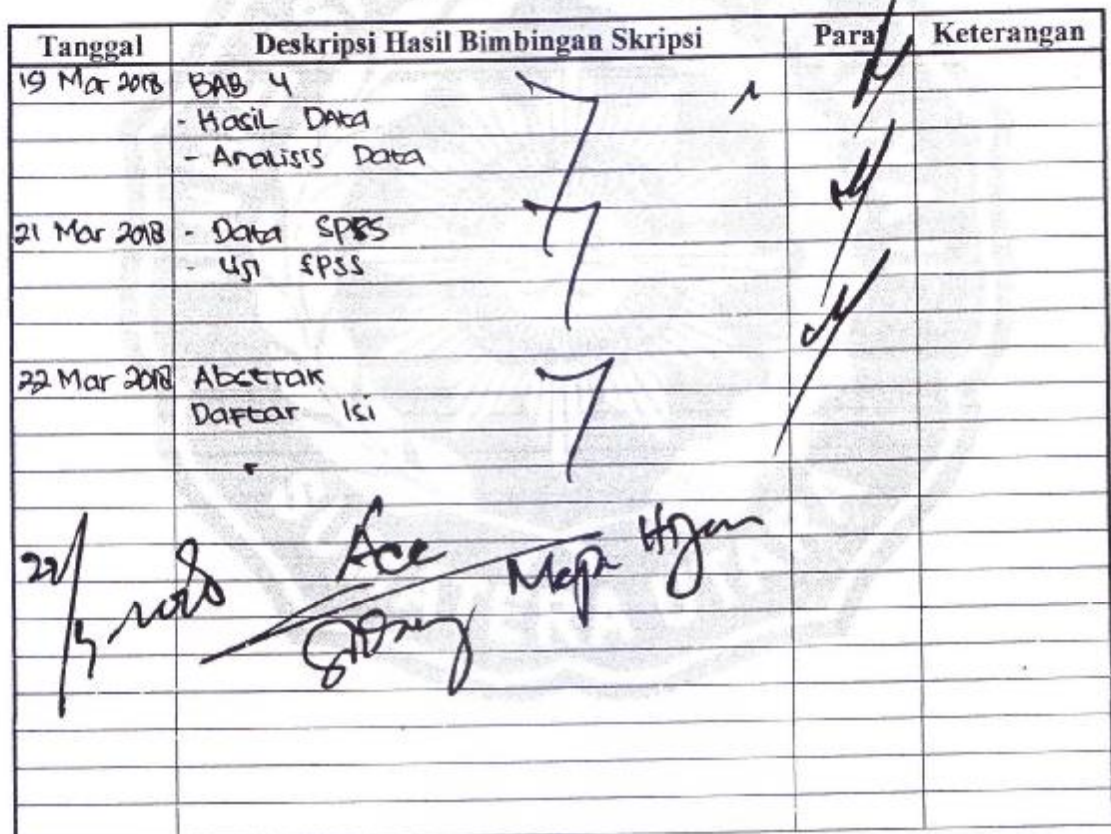 Tanggal Deskripsi Hasil Bimbingan Skripsi Paraf Keterangan
19 Mar 2018 BAB 4
- Hasil Data
- Analisis Data
21 Mar 2018 - Data SPSS
- Uji SPSS
22 Mar 2018 Abstrak
Daftar Isi
Acc